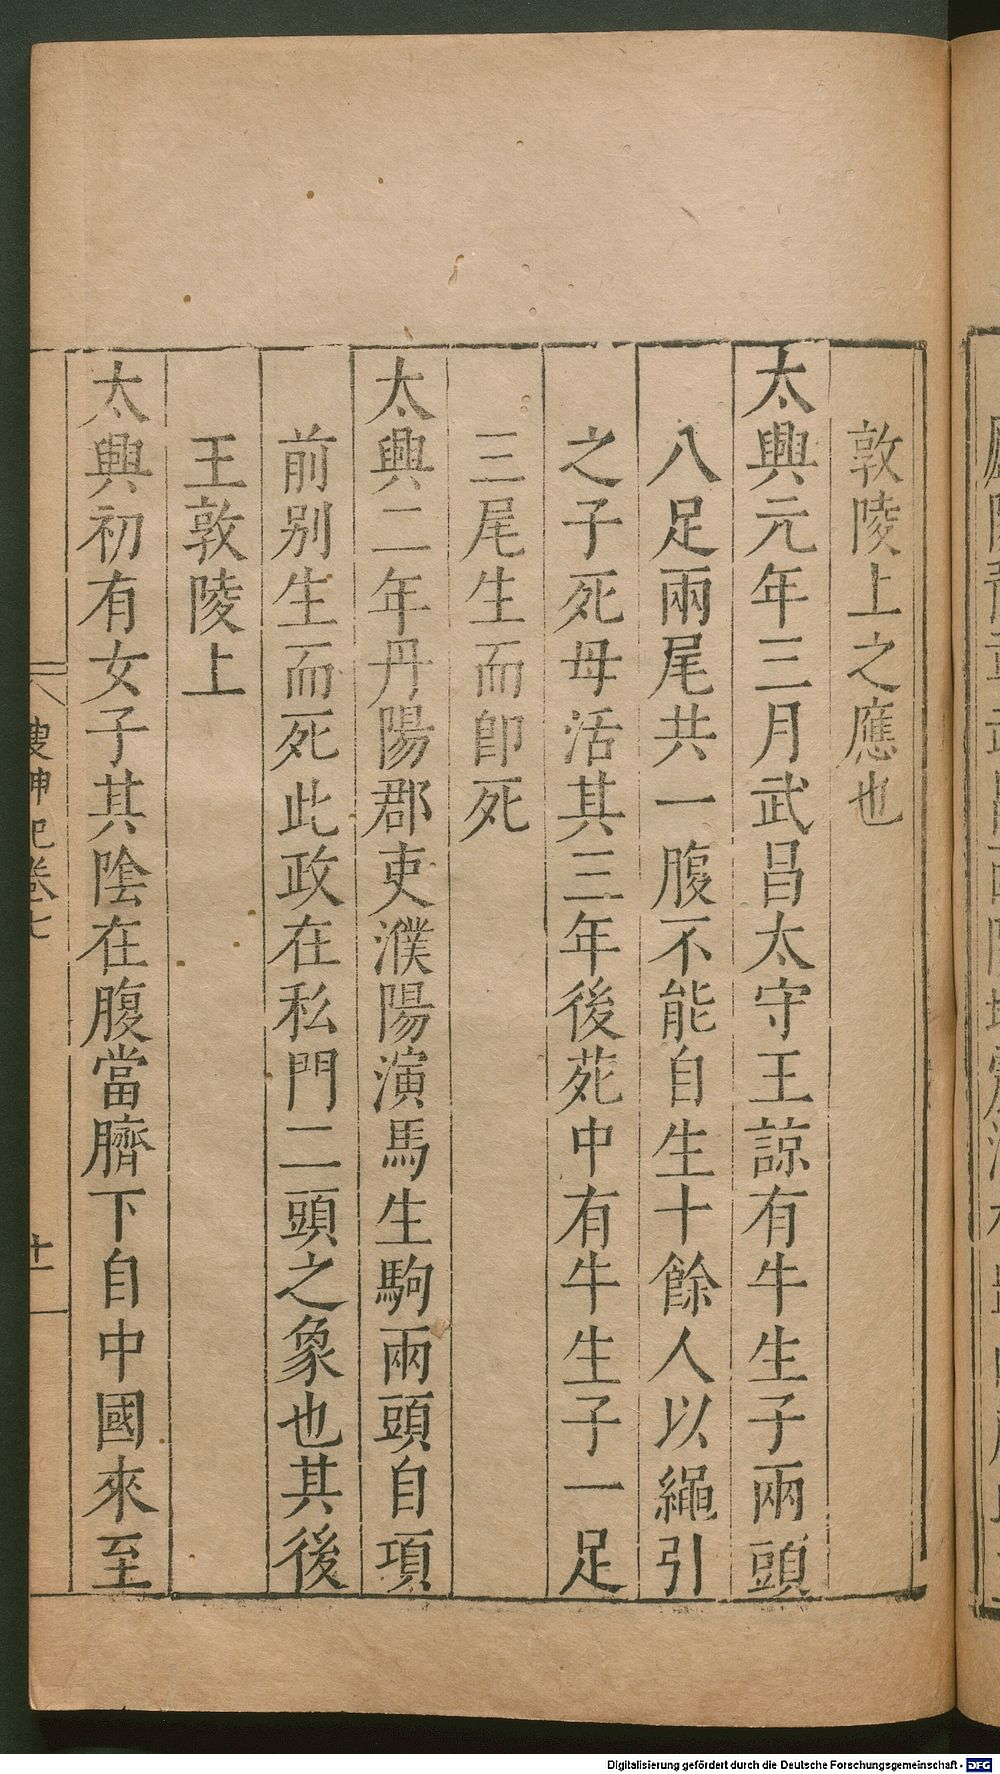 敦陵上之應也
太興元年三月武昌太守王諒有牛生子兩頭
八足兩尾共一腹不能自生十餘人以繩引
之子死母活其三年後苑中有牛生子一足
三尾生而卽死
太興二年丹陽郡吏濮陽演馬生駒兩頭自項
前别生而死此政在私門二頭之象也其後
王敦陵上
太興初有女子其陰在腹當臍下自中國來至
搜神記卷七
十一
Digitalisierung gefördert durch die Deutsche Forschungsgemeinschaft - DFG